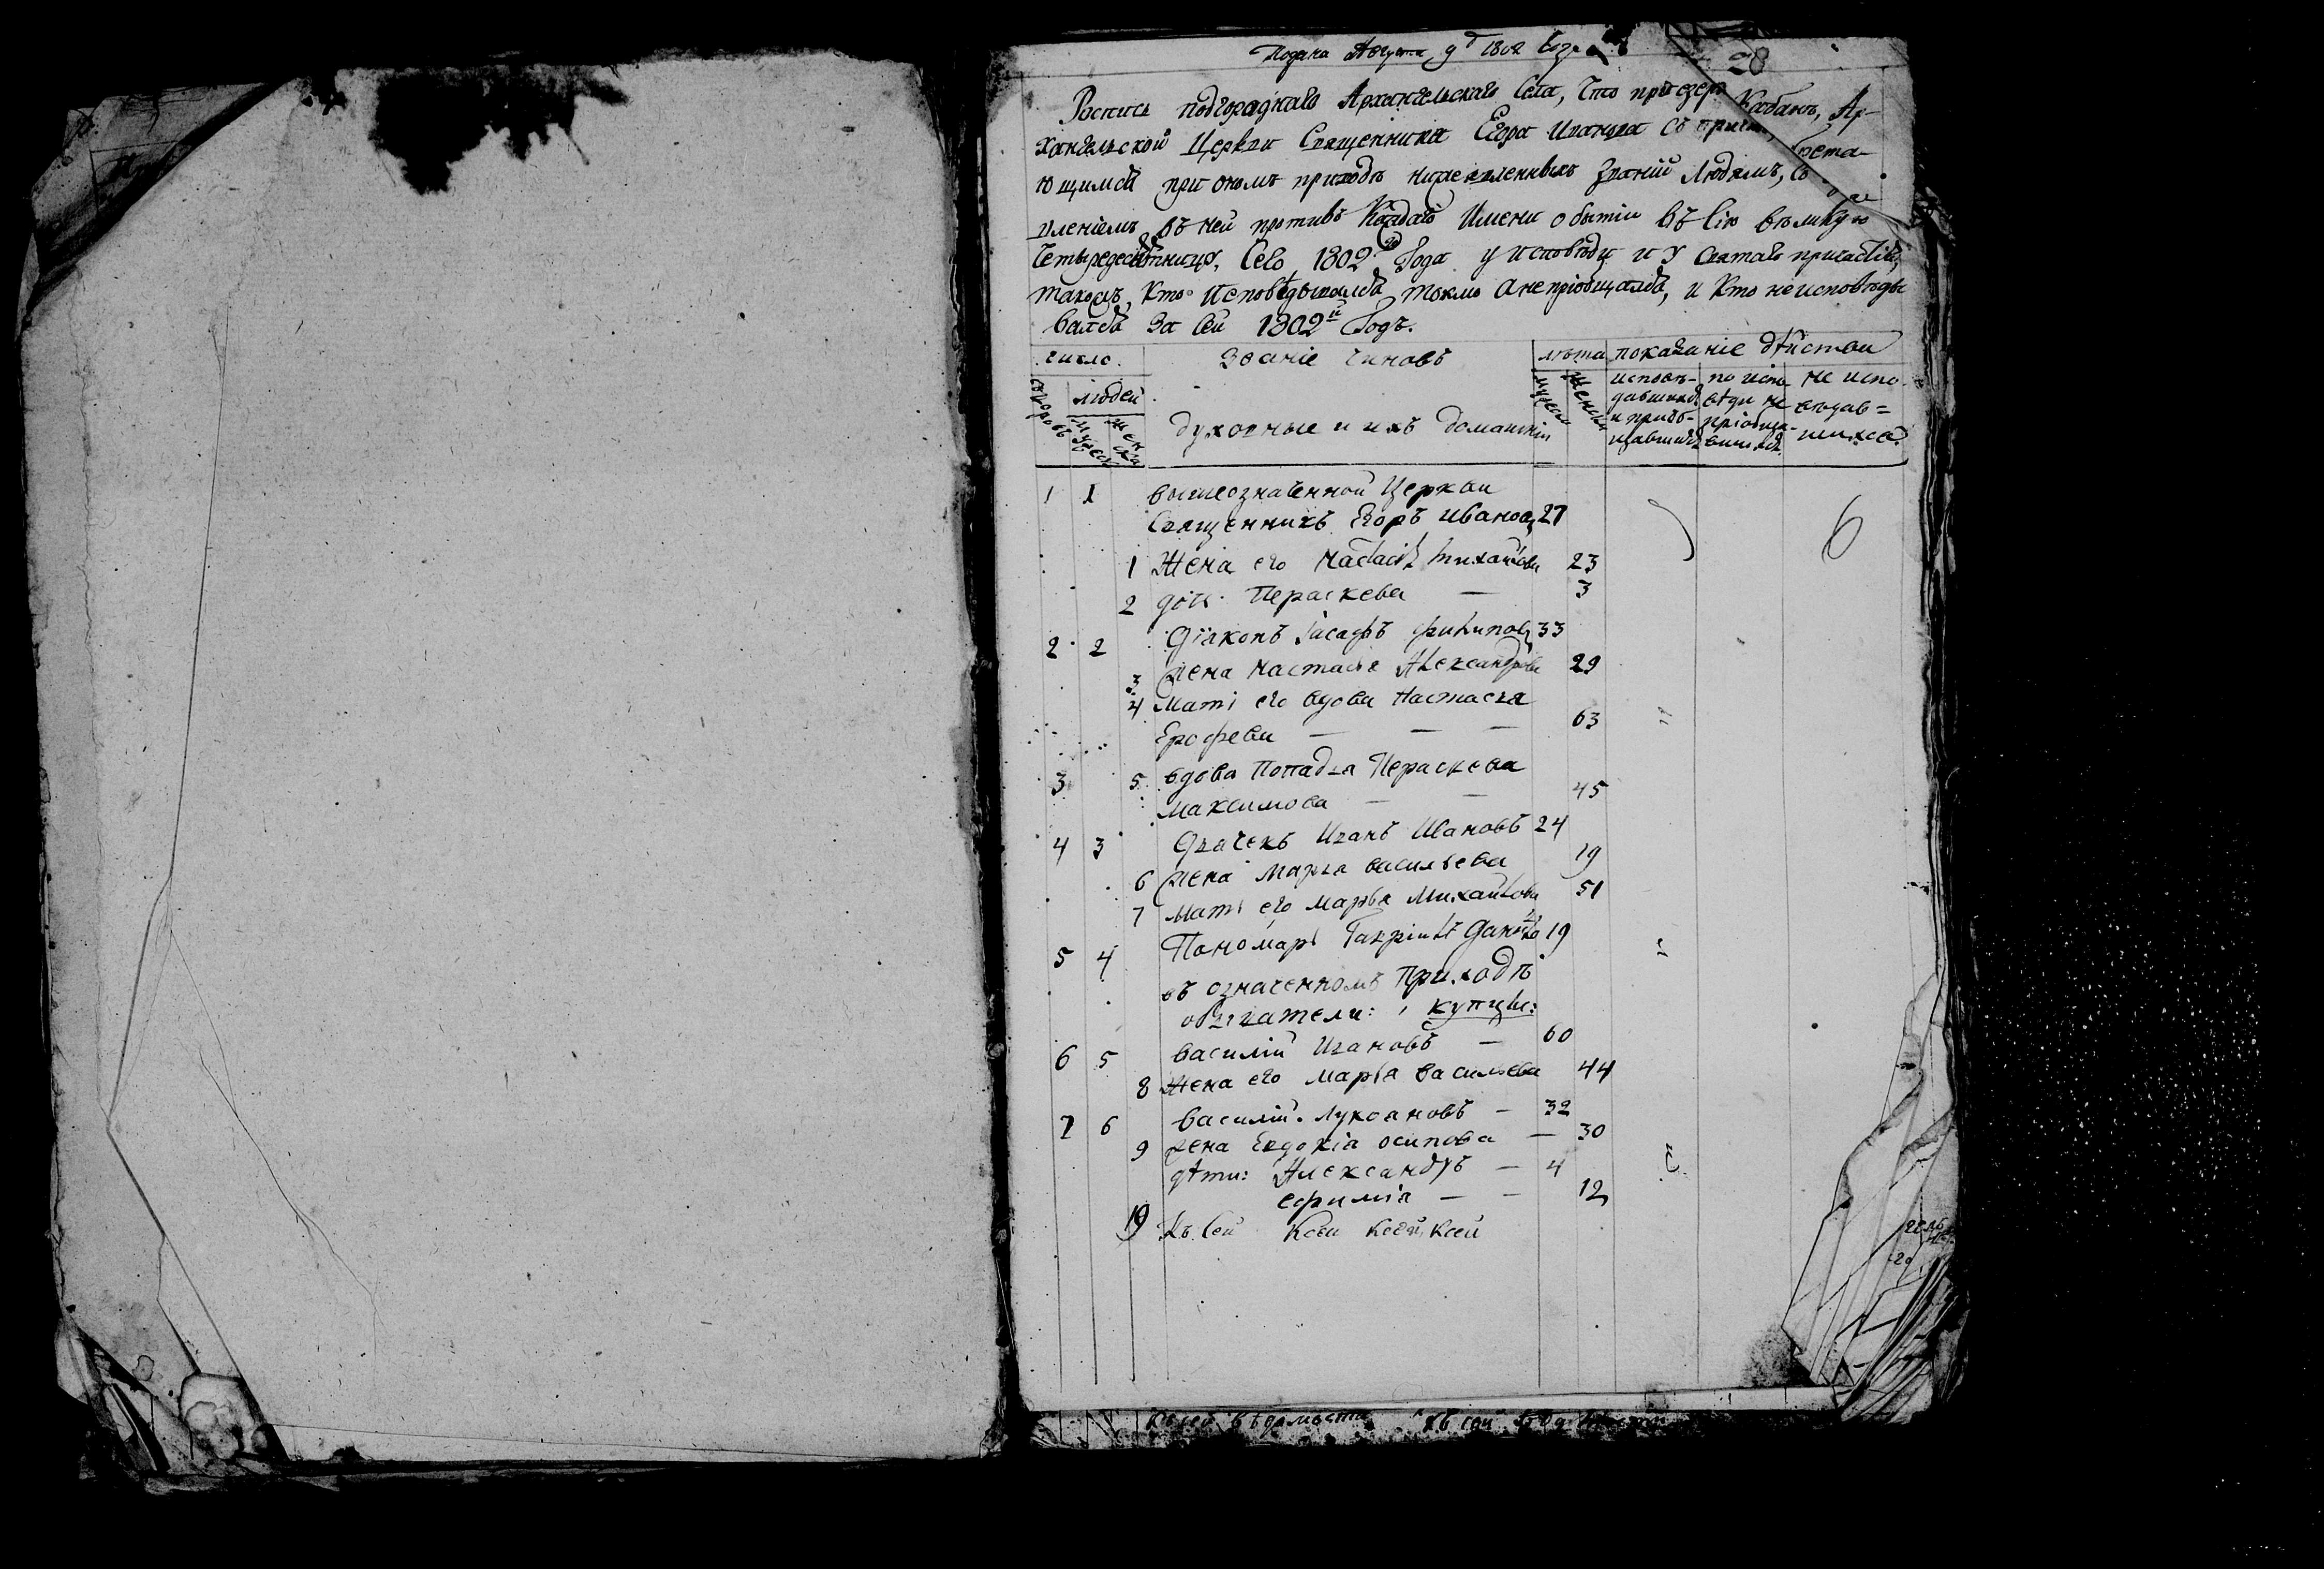 Подана Августа 9 1802 году
28
Роспись подгороднаго Архангельскаго Села, Что при озере Кабанъ, Ар-
хангельской Церкви Священника Егора Иванова съ причт, 
ющимся при ономъ приходѣ нижеявленныхъ званій Людямъ, Со
иленіемъ въ ней противъ Каждаго Имени о бытіи въ Сію великую
Четыредесятницу, Сего 1802го Года у исповѣди и у Святаго причастія,
такожъ Кто Исповѣдывался токмо а не пріобщался, и Кто не исповѣды
вался За Сей 1802й Годъ.
число. Званіе чиновъ лѣта показаніе дѣйства
дворовъ людей мужск женск
мужеск женска
духовные и ихъ домашнии
исповѣ-
давшихся
и приоб-
щавшихся
по испо-
вѣди не
пріобща-
вшихся
не испо-
вѣдав=
шихся.
1 1 вышеозначенной Церкви
Священникъ Егоръ Иванов 27
1 Жена его Настасья Михайлова 23
2 дочь Пераскева — 3
6
2 2 Діаконъ Іасафъ Филипов 33
3 жена Настасья Александрова 29
4 Мать его вдова Настасья
Ерофеева — — — 63
3 5 вдова Попадья Пераскева
Максимова — — 45
4 3 Дьячекъ Иванъ Ивановъ 24
6 жена Марья Васильева 19
7 Мать его Марья Михайлова 51
5 4 Пономарь Гавріилъ Данило 19
въ означенномъ Приходѣ
обыватели: купцы:
6 5 Василій Ивановъ — 60
8 Жена его Марья Васильева 44
7 6 Василій Лукоановъ — 32
9 жена Евдокія Осипова — 30
дѣти: Александръ — 4
Ефимія — — 12
19 Къ Сей
Къ сей вѣдомости къ сей